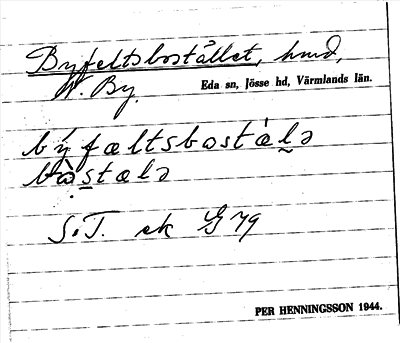 Byfeltsbostället, hmd,
V. By.
Eda sn, Jösse hd, Värmlands län.
býfæltsbostál̰ə
bòstælə
S.T. ek G 79
PER HENNINGSSON 1944.